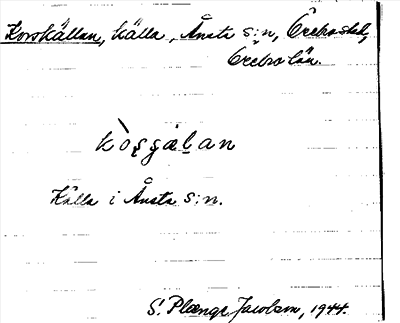 Korskällan, källa, Ånsta s:n, Örebro stad,
Örebro län.
kòşşäḷan
Källa i Ånsta s:n.
S. Plænge Jacobson, 1944.